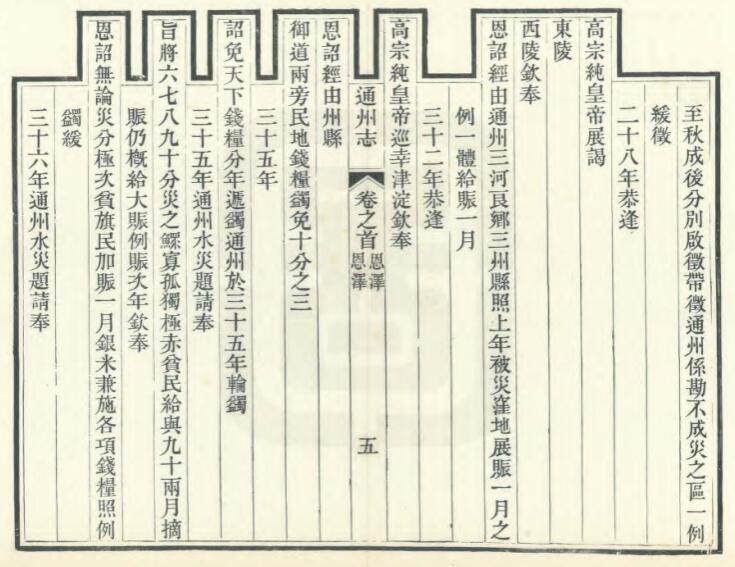 至秋成後分別啟徵帶徵通州係勘不成災之區一例
緩徵
二十八年恭逢
高宗純皇帝展謁
東陵
西陵欽奉
恩詔經由通州三河良鄉三州縣照上年被災窪地展賑一月之
例一體給賑一月
三十二年恭逢
高宗純皇帝巡幸津淀欽奉
通州志
卷之首
恩澤
恩澤
五
恩詔經由州縣
御道兩旁民地錢糧蠲免十分之三
三十五年
詔免天下錢糧分年遞蠲通州於三十五年輪蠲
三十五年通州水災題請奉
旨將六七八九十分災之鰥寡孤獨極赤貧民給與九十兩月摘
賑仍概給大賑例賑次年欽奉
恩詔無論災分極次貧旗民加賑一月銀米兼施各項錢糧照例
蠲緩
三十六年通州水災題請奉